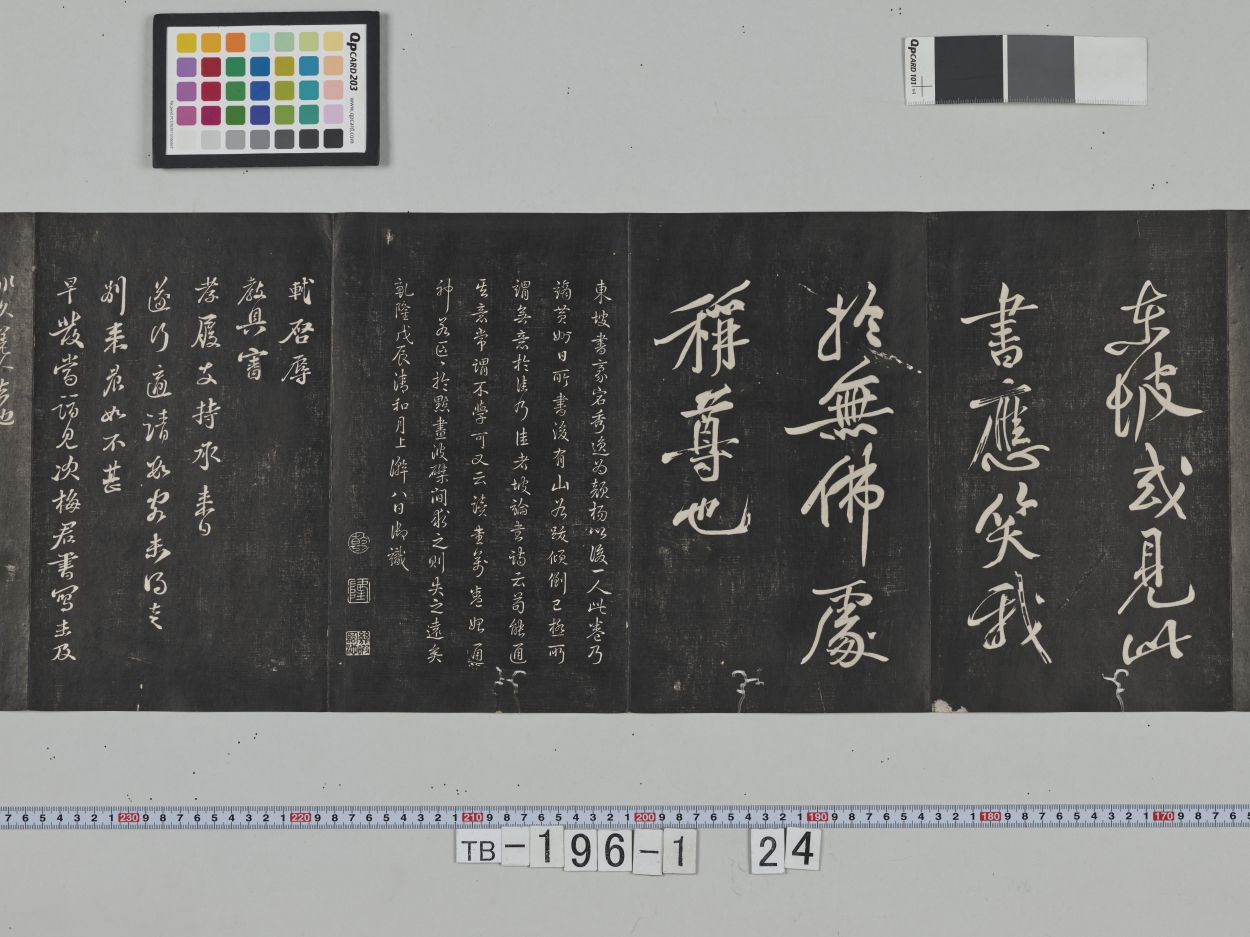 東坡或見此
書應笑我
於無佛處
稱尊也
東坡書豪宕秀逸為顏楊以後一人此卷乃
謫黃州日所書後有山谷跋傾倒已極所
謂無意於佳乃佳者坡論書詩云苟能通
其意常謂不學可又云讀書萬卷始通
神若區區於點畫波磔間求之則失之遠矣
乾隆戊辰清和月上澣八日御識
乾
隆
軾啓辱
教具審
孝履支持承来日
遂行適請數客未得走
別来晨如不甚
早發當詣見次梅君書寫未及
QPCARD 203
www.qpcard.com
QPCARD 101
TB-196-1 24
230
220
210
200
190
180
170